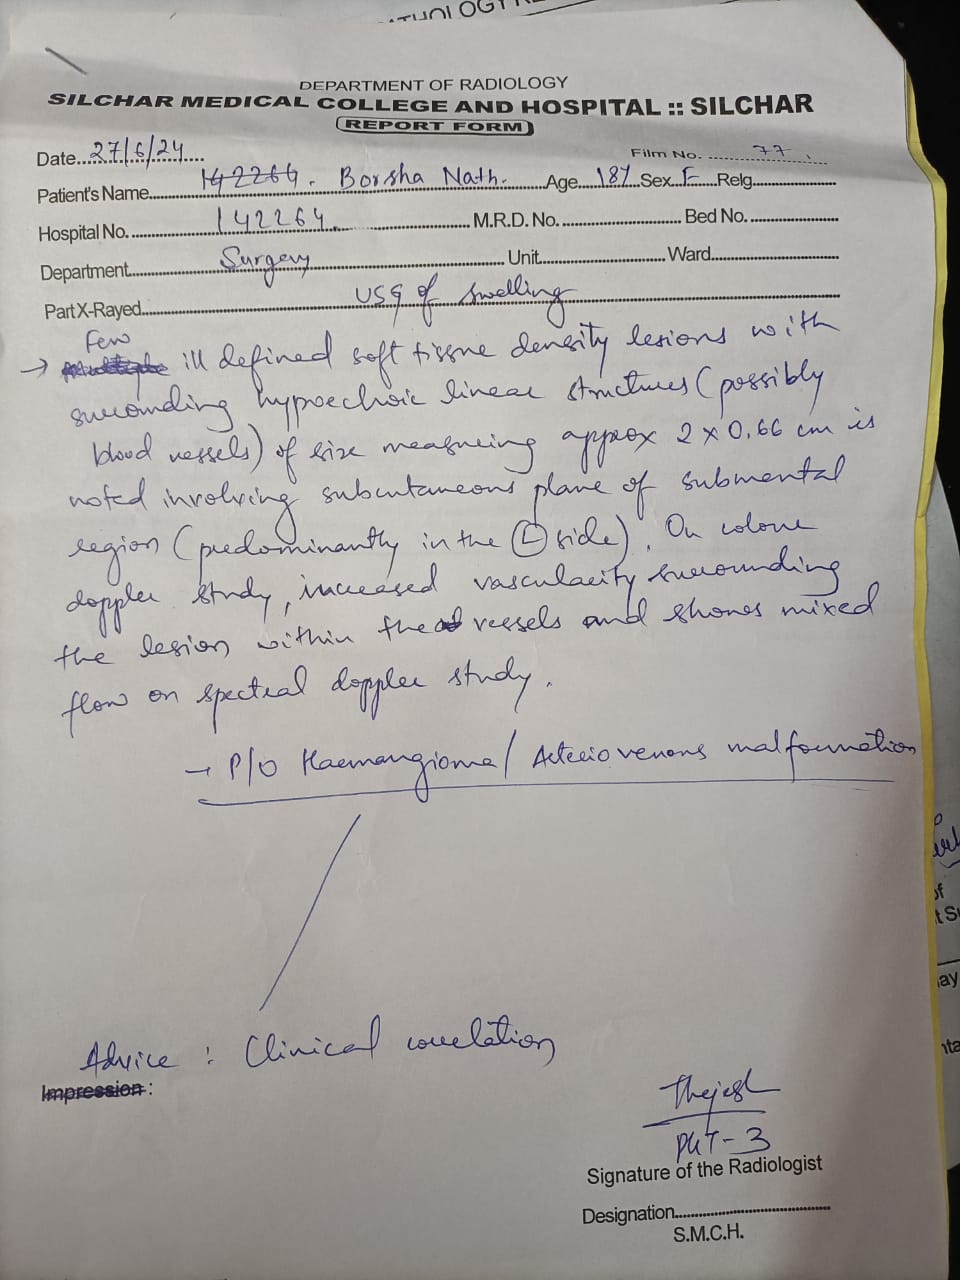 DEPARTMENT OF RADIOLOGY
SILCHAR MEDICAL COLLEGE AND HOSPITAL :: SILCHAR
REPORT FORM
Date...27/6/24.... Film No. ...77.
Patient's Name...142264. Borsha Nath. Age...18y Sex..F...Relg...
Hospital No. ...142264... M.R.D. No. ... Bed No. ...
Department...Surgery... Unit... Ward...
Part X-Rayed...USG of swelling
Few
→ ill defined soft tissue density lesions with
surrounding hypoechoic linear structures (possibly
blood vessels) of size measuring approx 2 x 0.66 cm is
noted involving subcutaneous plane of submental
region (predominantly in the (L) side). On colour
doppler study, increased vascularity surrounding
the lesion within the vessels and shows mixed
flow on spectral doppler study.
→ P/O Haemangioma / Arteriovenous malformation
Advice : Clinical correlation
Impression :
Thejesh
PGT-3
Signature of the Radiologist
Designation...
S.M.C.H.